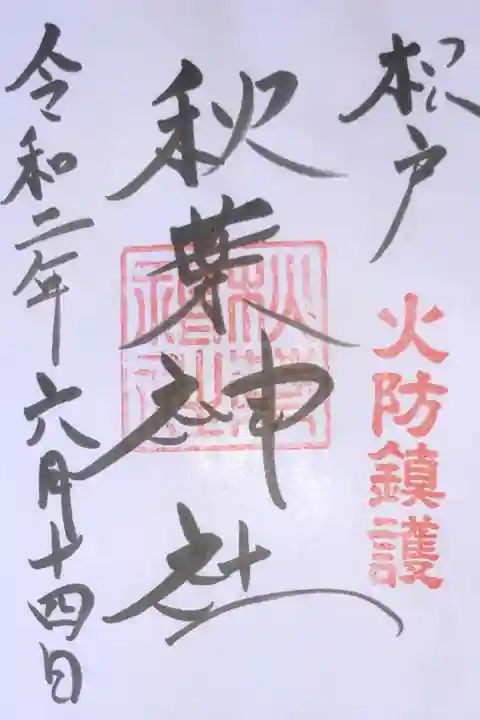 松戸
火防鎮護
秋葉神社
令和二年六月十四日